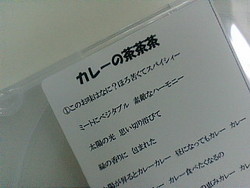 カレーの茶茶茶
①このお味はなに？ほろ苦くてスパイシィー
ミートにベジタブル 素敵なハーモニー
太陽の光 思い切り浴びて
緑の香りに 包まれた
が昇るとカレーカレー 昼になってもカレー カレー
カレー カレー食べたくなるの
カレー